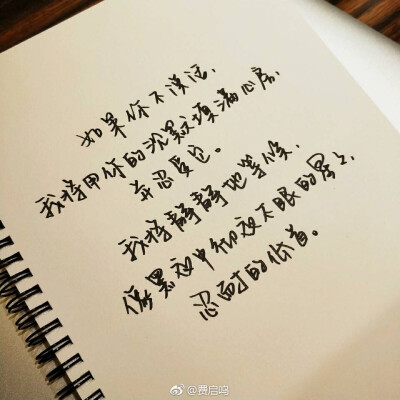 如果你不说话，
我将用你的沉默填满心房，
并忍负它。
我将静静地等候，
像黑夜中彻夜不眠的星上，
忍耐的低首。
@费启鸣